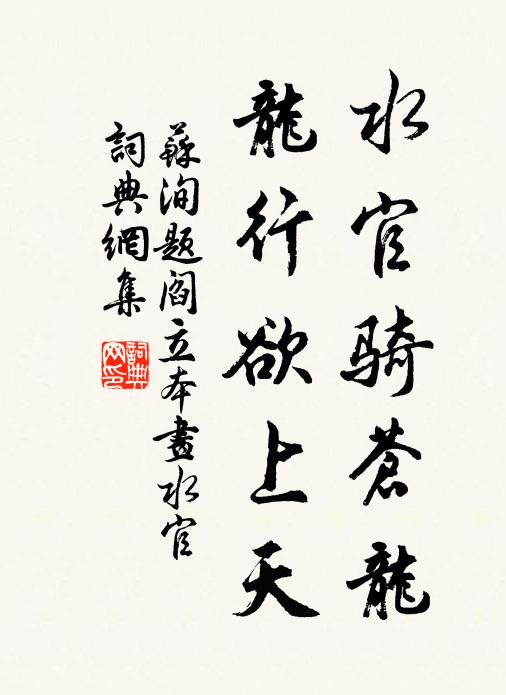 水官騎蒼龍
龍行欲上天
蘇洵题閻立本畫水官
詞典網集
詞典网印